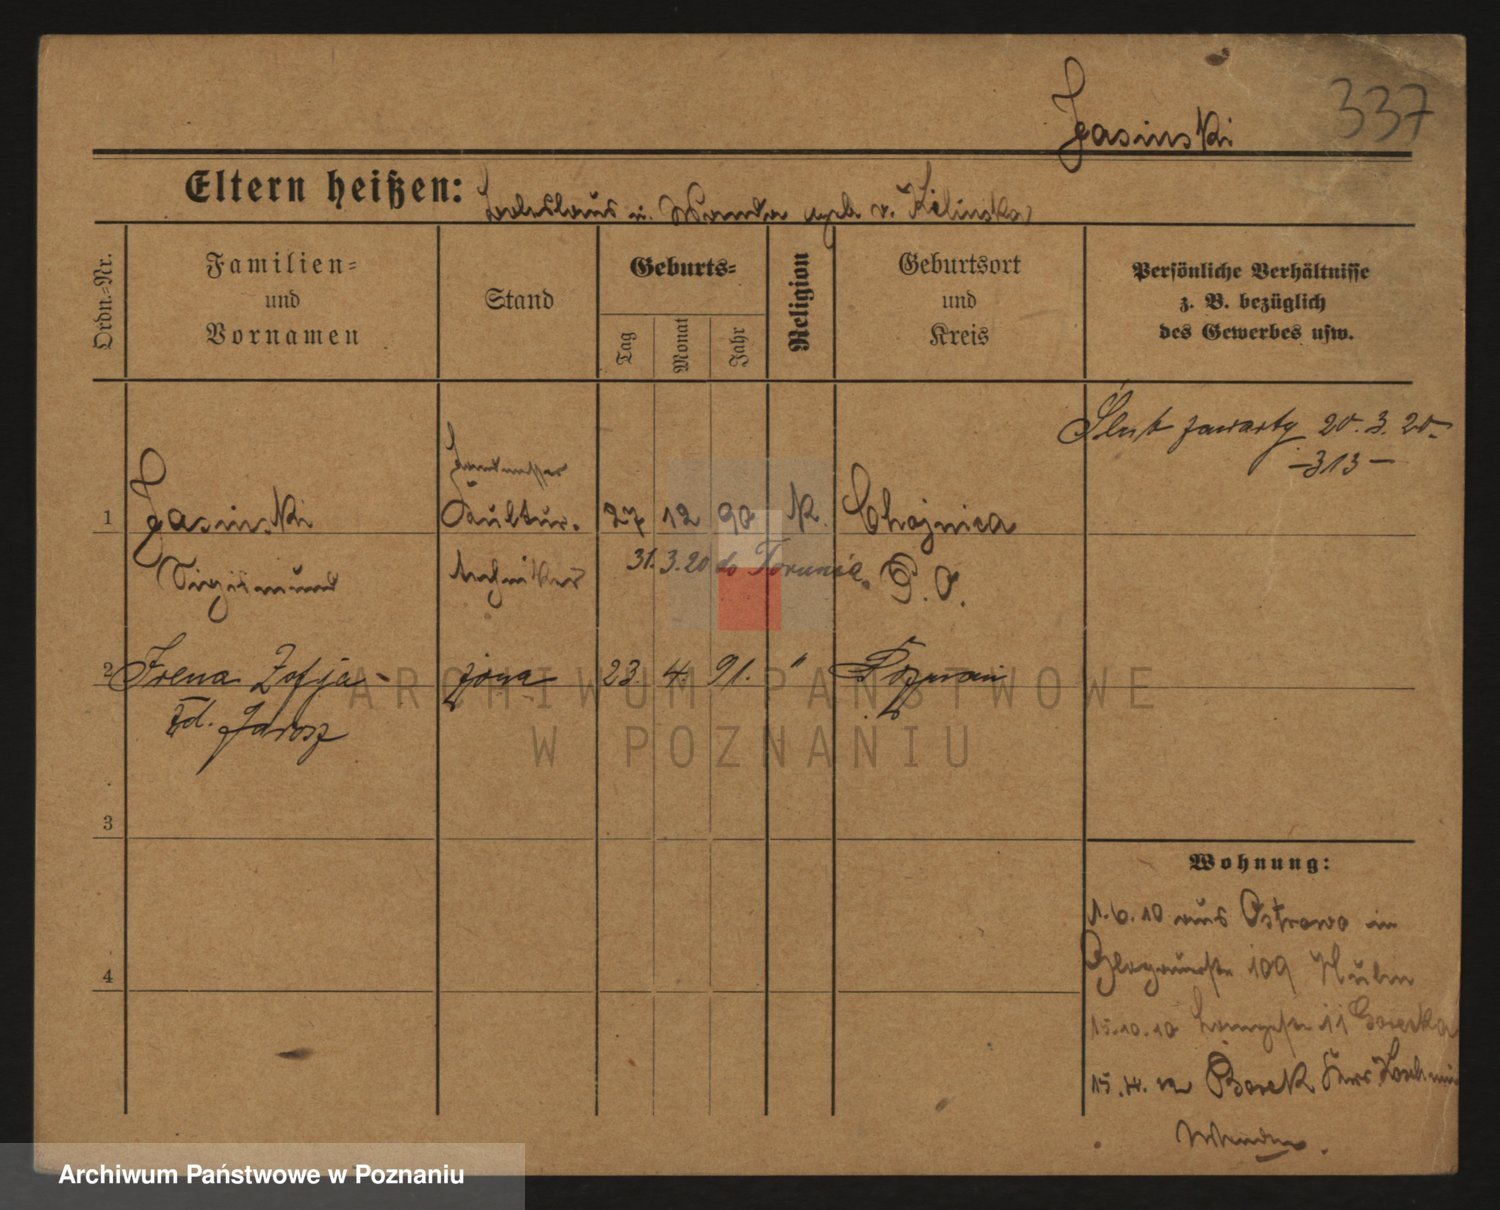 337
Jasinski
Eltern heißen: Ladislaus u. Wanda geb. v. Kilinska
Ordn.-Nr.
Familien- und Vornamen
Stand
Geburts-
Tag
Monat
Jahr
Religion
Geburtsort und Kreis
Persönliche Verhältnisse
z. B. bezüglich
des Gewerbes usw.
Ślub zawarty 20.3.20.
-313-
1 Jasinski Kultur- 27 12 90 K. Chojnica
Sigismund techniker P. O.
31.3.20 do Torunia
2 Irena Zofja żona 23. 4. 91. " Poznań
zd. Jarosz
3
4
Wohnung:
1.6.10 aus Ostrowo in
Glogauerstr 109
15.10.10 11 Gorecka
Borek Krs Koschmin
ARCHIWUM PAŃSTWOWE
W POZNANIU
Archiwum Państwowe w Poznaniu